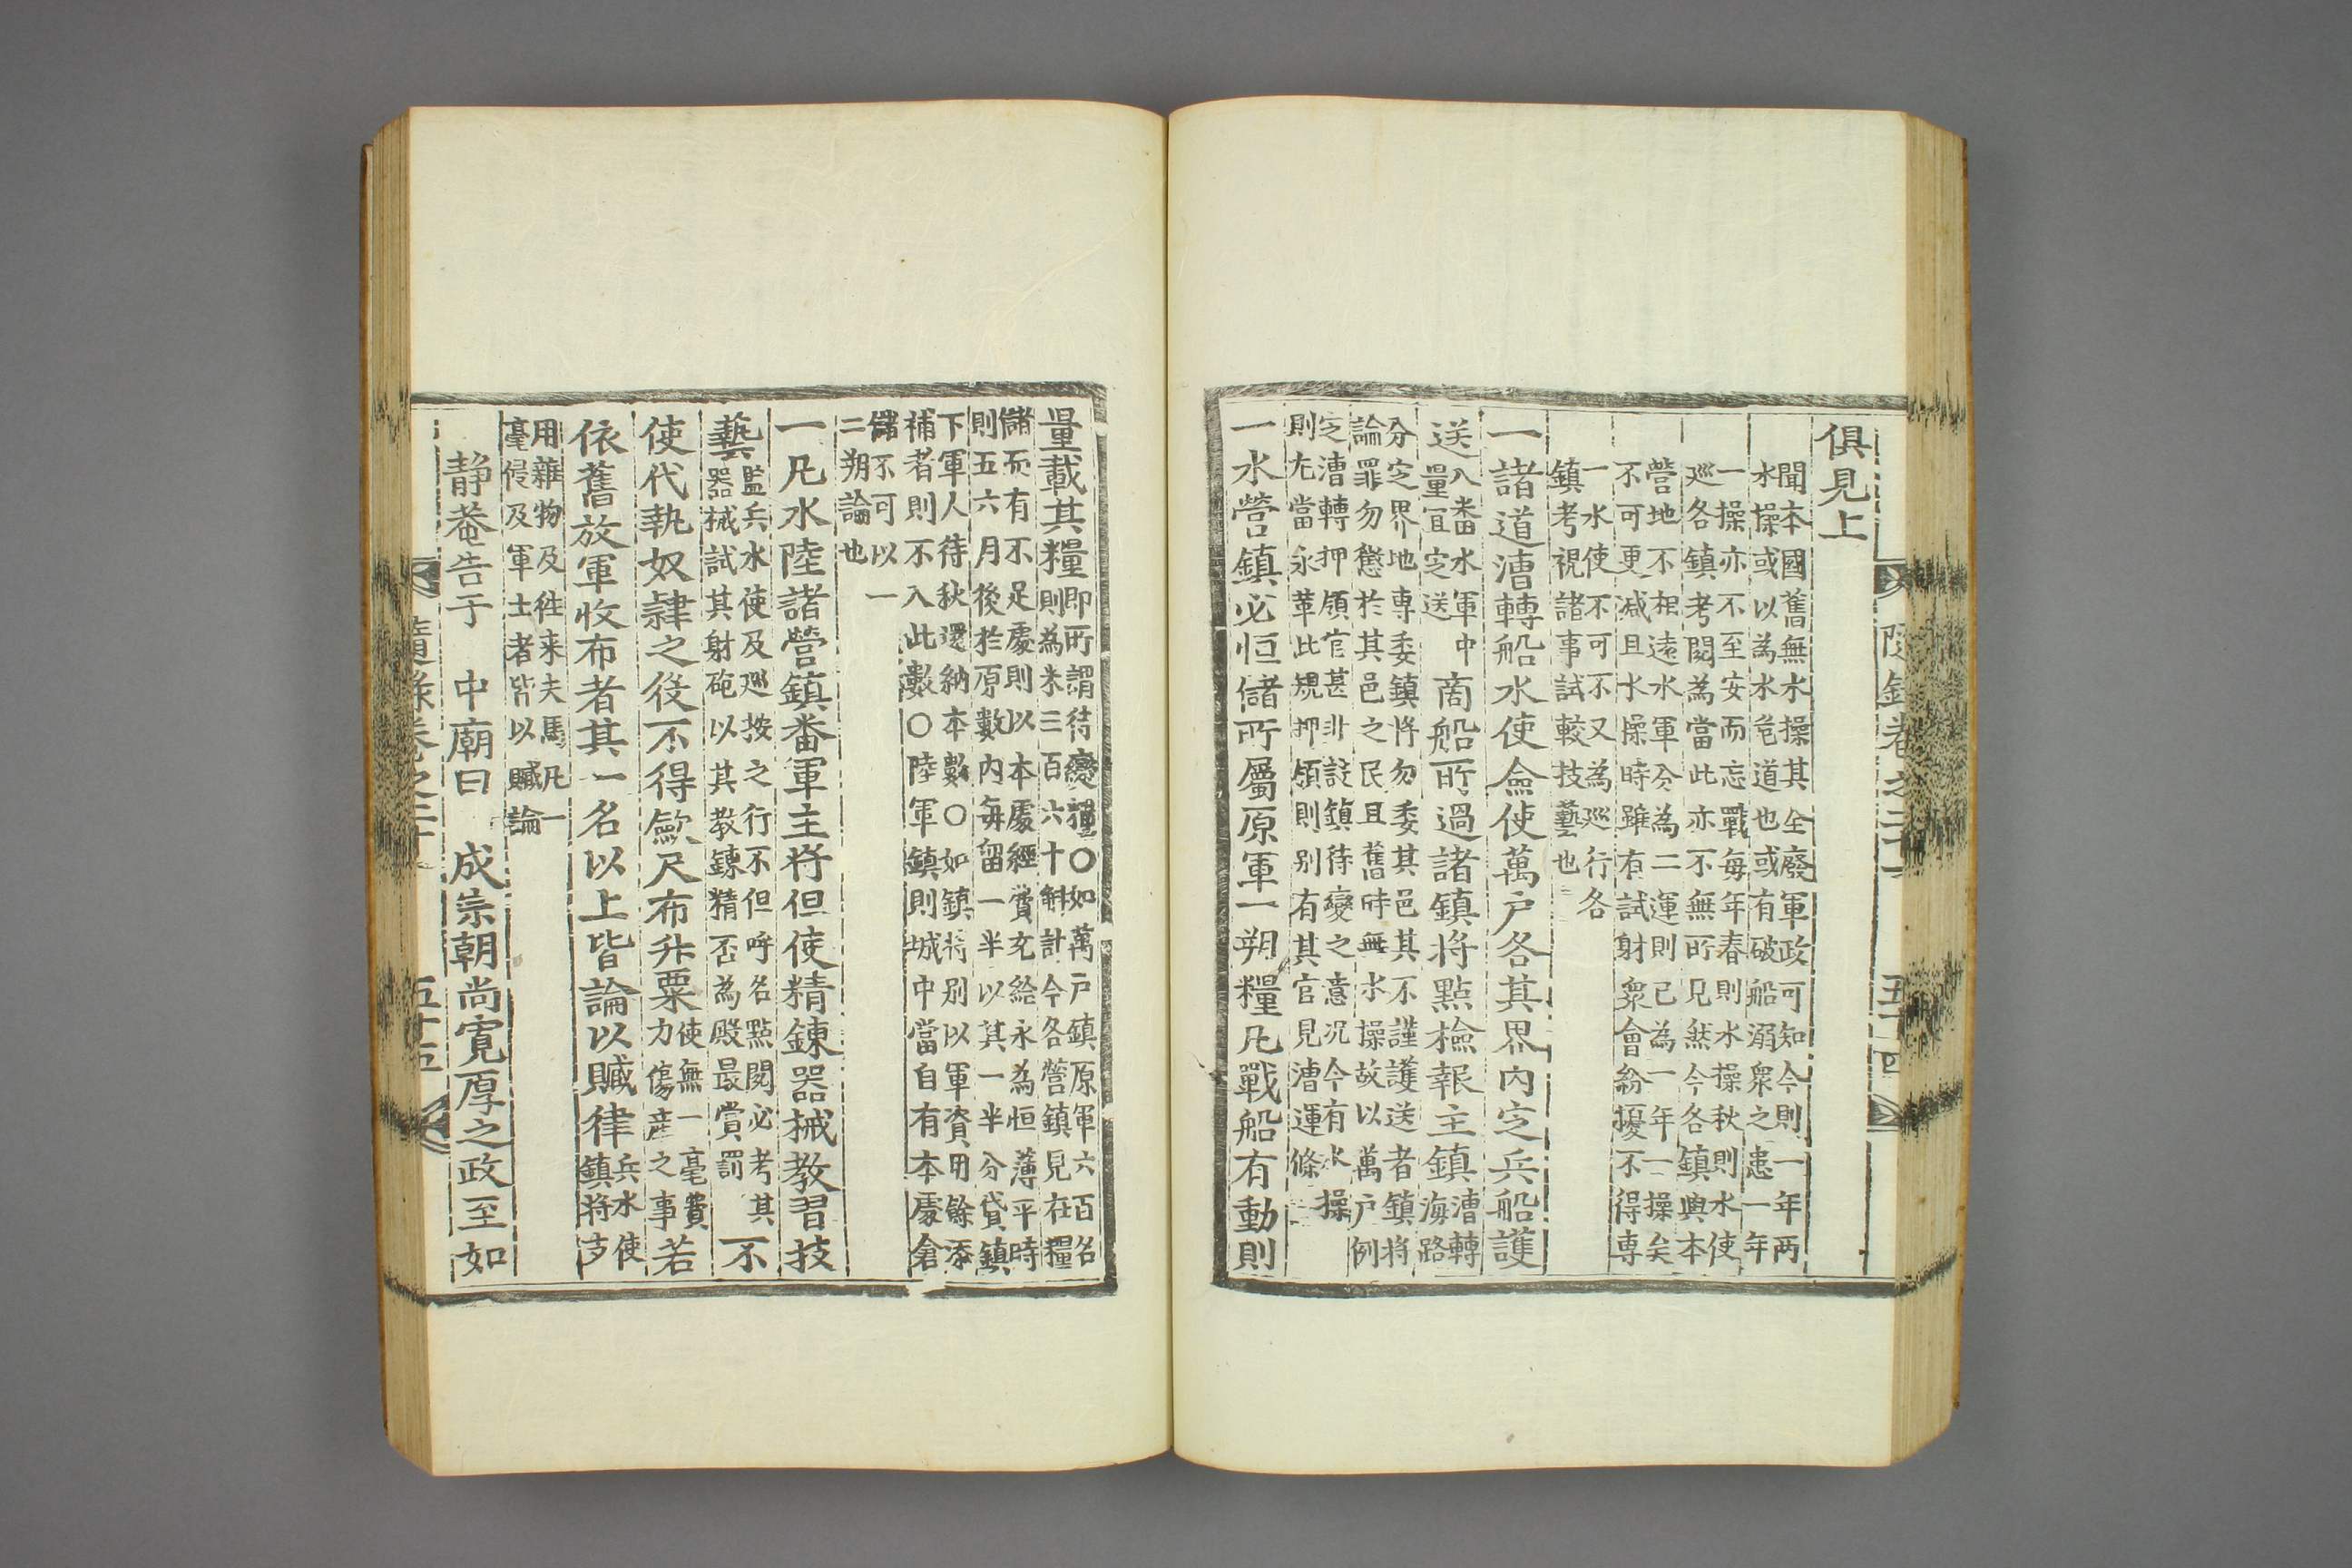 隨錄卷之二十一 五十四
俱見上
聞本國舊無水操其全廢軍政可知今則一年两
水操或以為水危道也或有破船溺衆之患一年
一操亦不至安而忘戰每年春則水操秋則水使
巡各鎮考閱為當此亦不無所見然今各鎮與本
營地不相遠水軍分為二運則已為一年一操矣
不可更减且水操時雖有試射衆會紛擾不得専
一水使不可不又為巡行各
鎮考視諸事試較技藝也
一諸道漕轉船水使僉使萬户各其界内㝎兵船護
送八番水軍中量宜㝎送商船所過諸鎮将點檢報主鎮漕轉海路
分㝎界地専委鎮将勿委其邑其不謹護送者鎮将
論罪勿懲於其邑之民且舊時無水操故以萬户例
㝎漕轉押領官甚非設鎮待變之意况今有水操
則尤當永革此規押領則别有其官見漕運條
一水營鎮必恒儲所屬原軍一朔糧凡戰船有動則
量載其糧即所謂待變糧〇如萬户鎮原軍六百名則為米三百六十斛計今各營鎮見在糧
儲而有不足處則以本處經費充給永為恒薄平時
則五六月後於原數内每留一半以其一半分貸鎮
下軍人待秋還納本數〇如鎮将别以軍資用餘添
補者則不入此數〇陸軍鎮則城中當自有本處倉
儲不可以一
二朔論也
一凡水陸諸營鎮番軍主将但使精鍊器械教習技
藝監兵水使及巡按之行不但呼名點閱必考其器械試其射砲以其教鍊精否為殿最賞罰不
使代執奴隷之役不得歛尺布升粟使無一毫費力傷産之事若
依舊放軍收布者其一名以上皆論以贓律兵水使鎮将支
用雜物及徃来夫馬凡一
毫侵及軍士者皆以贓論
静菴告于 中廟曰 成宗朝尚寛厚之政至如
隨錄卷之二十一 五十五